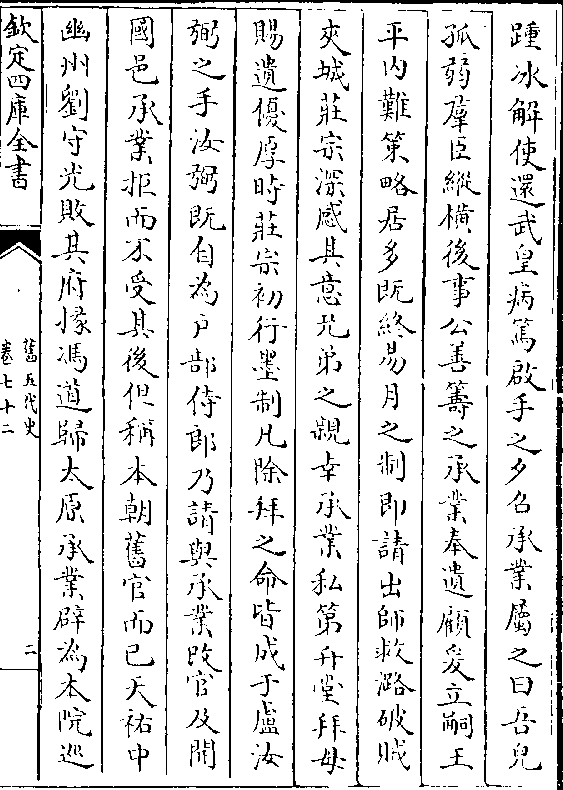 踵冰解使還武皇病篤啟手之夕召承業屬之曰吾兒
孤弱羣臣縱橫後事公善籌之承業奉遺顧爰立嗣王
平内難策略居多既終易月之制即請出師救潞破賊
夾城莊宗深感其意兄弟之親幸承業私第升堂拜母
賜遺優厚時莊宗初行墨制凡除拜之命皆成于盧汝
弼之手汝弼既自為户部侍郎乃請與承業改官及開
國邑承業拒而不受其後但稱本朝舊官而已天祐中
幽州劉守光敗其府掾馮道歸太原承業辟為本院巡
欽定四庫全書
舊五代史
卷七十二
二